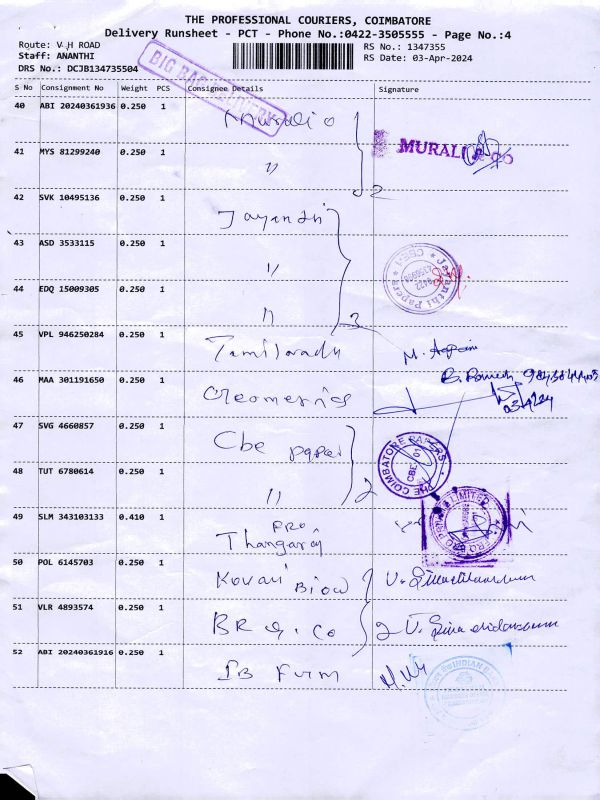 THE PROFESSIONAL COURIERS, COIMBATORE
Delivery Runsheet - PCT - Phone No.:0422-3505555 - Page No.:4
Route: V H ROAD
RS No.: 1347355
Staff: ANANTHI
RS Date: 03-Apr-2024
DRS No.: DCJB134735504
BIG BAG DELIVERY
S No Consignment No Weight PCS Consignee Details Signature
40 ABI 20240361936 0.250 1
MURALI & CO
41 MYS 81299240 0.250 1 "
2
42 SVK 10495136 0.250 1 Jayanthi
43 ASD 3533115 0.250 1 "
Jayanthi Papers
44 EDQ 15009305 0.250 1 "
3
45 VPL 946250284 0.250 1 Tamilnadu
46 MAA 301191650 0.250 1
B. Ramesh
03/4/24
47 SVG 4660857 0.250 1 Cbe paper
THE COIMBATORE PAPERS
CBE 01
48 TUT 6780614 0.250 1 "
2
49 SLM 343103133 0.410 1 PRO
Thangaraj
LIMITED
50 POL 6145703 0.250 1 Kovai
51 VLR 4893574 0.250 1 BR & Co 2
52 ABI 20240361916 0.250 1 IB Furm
INDIAN BANK